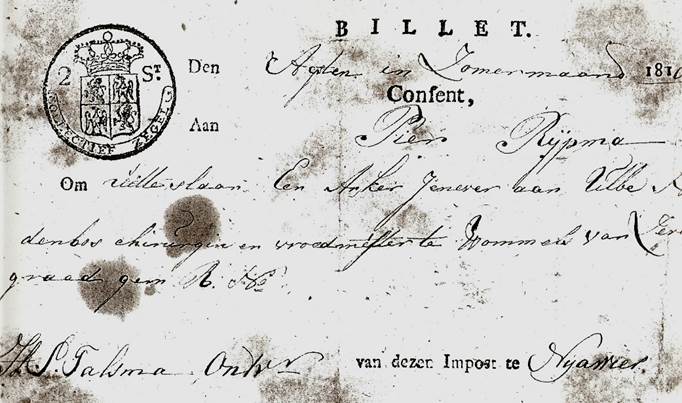 BILLET.
2 St.
COLLECTIEF ZEGEL
Den Agsten in Zomermaand 181
Consent,
Aan Pier Rijpma
Om uitteslaan Een Anker Jenever aan Ulbe
denbss chirurgin en vroedmeester te Wommels van
graad gem R. No
H. S. Talsma Ontvr van dezen Impost te Nyawier.